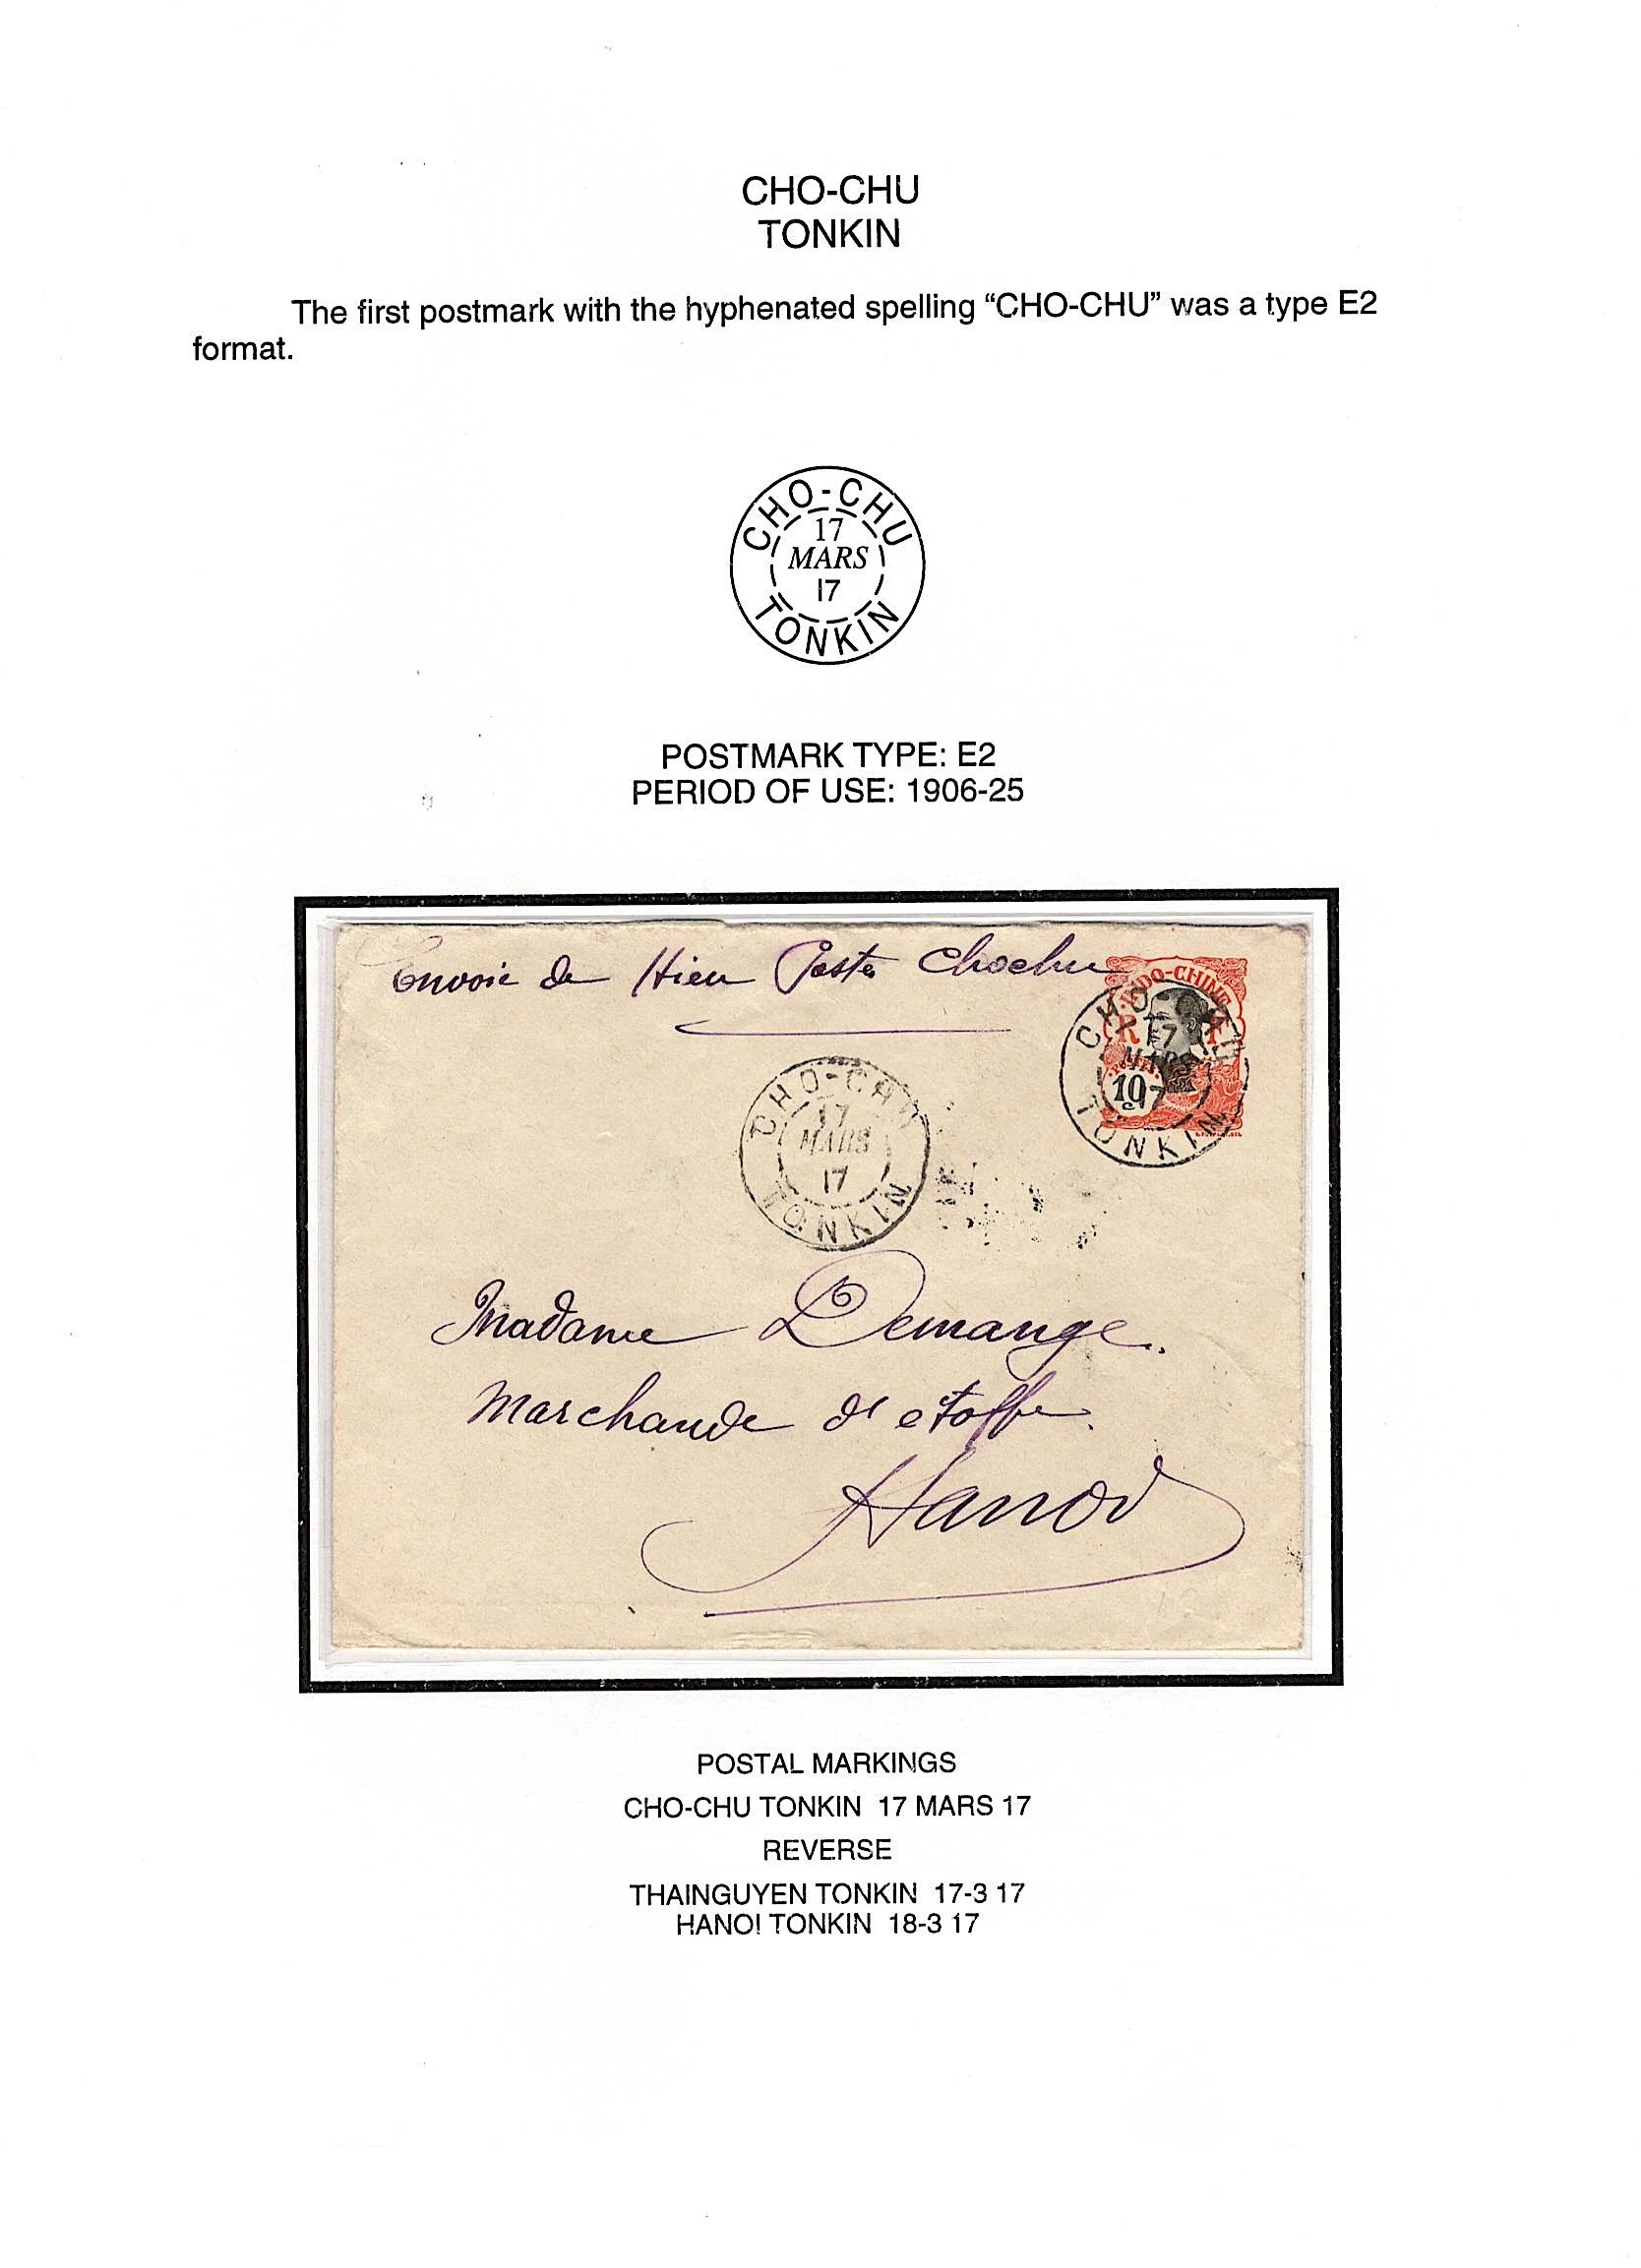 CHO-CHU
TONKIN
The first postmark with the hyphenated spelling “CHO-CHU” was a type E2
format.
CHO-CHU
17
MARS
17
TONKIN
POSTMARK TYPE: E2
PERIOD OF USE: 1906-25
Envoie de Hien Poste Chochu
INDO-CHINE
R F
10
CHO-CHU
17
MARS
17
TONKIN
CHO-CHU
17
MARS
17
TONKIN
Madame Demange.
Marchande d'etoffe.
Hanoi
POSTAL MARKINGS
CHO-CHU TONKIN 17 MARS 17
REVERSE
THAINGUYEN TONKIN 17-3 17
HANOI TONKIN 18-3 17